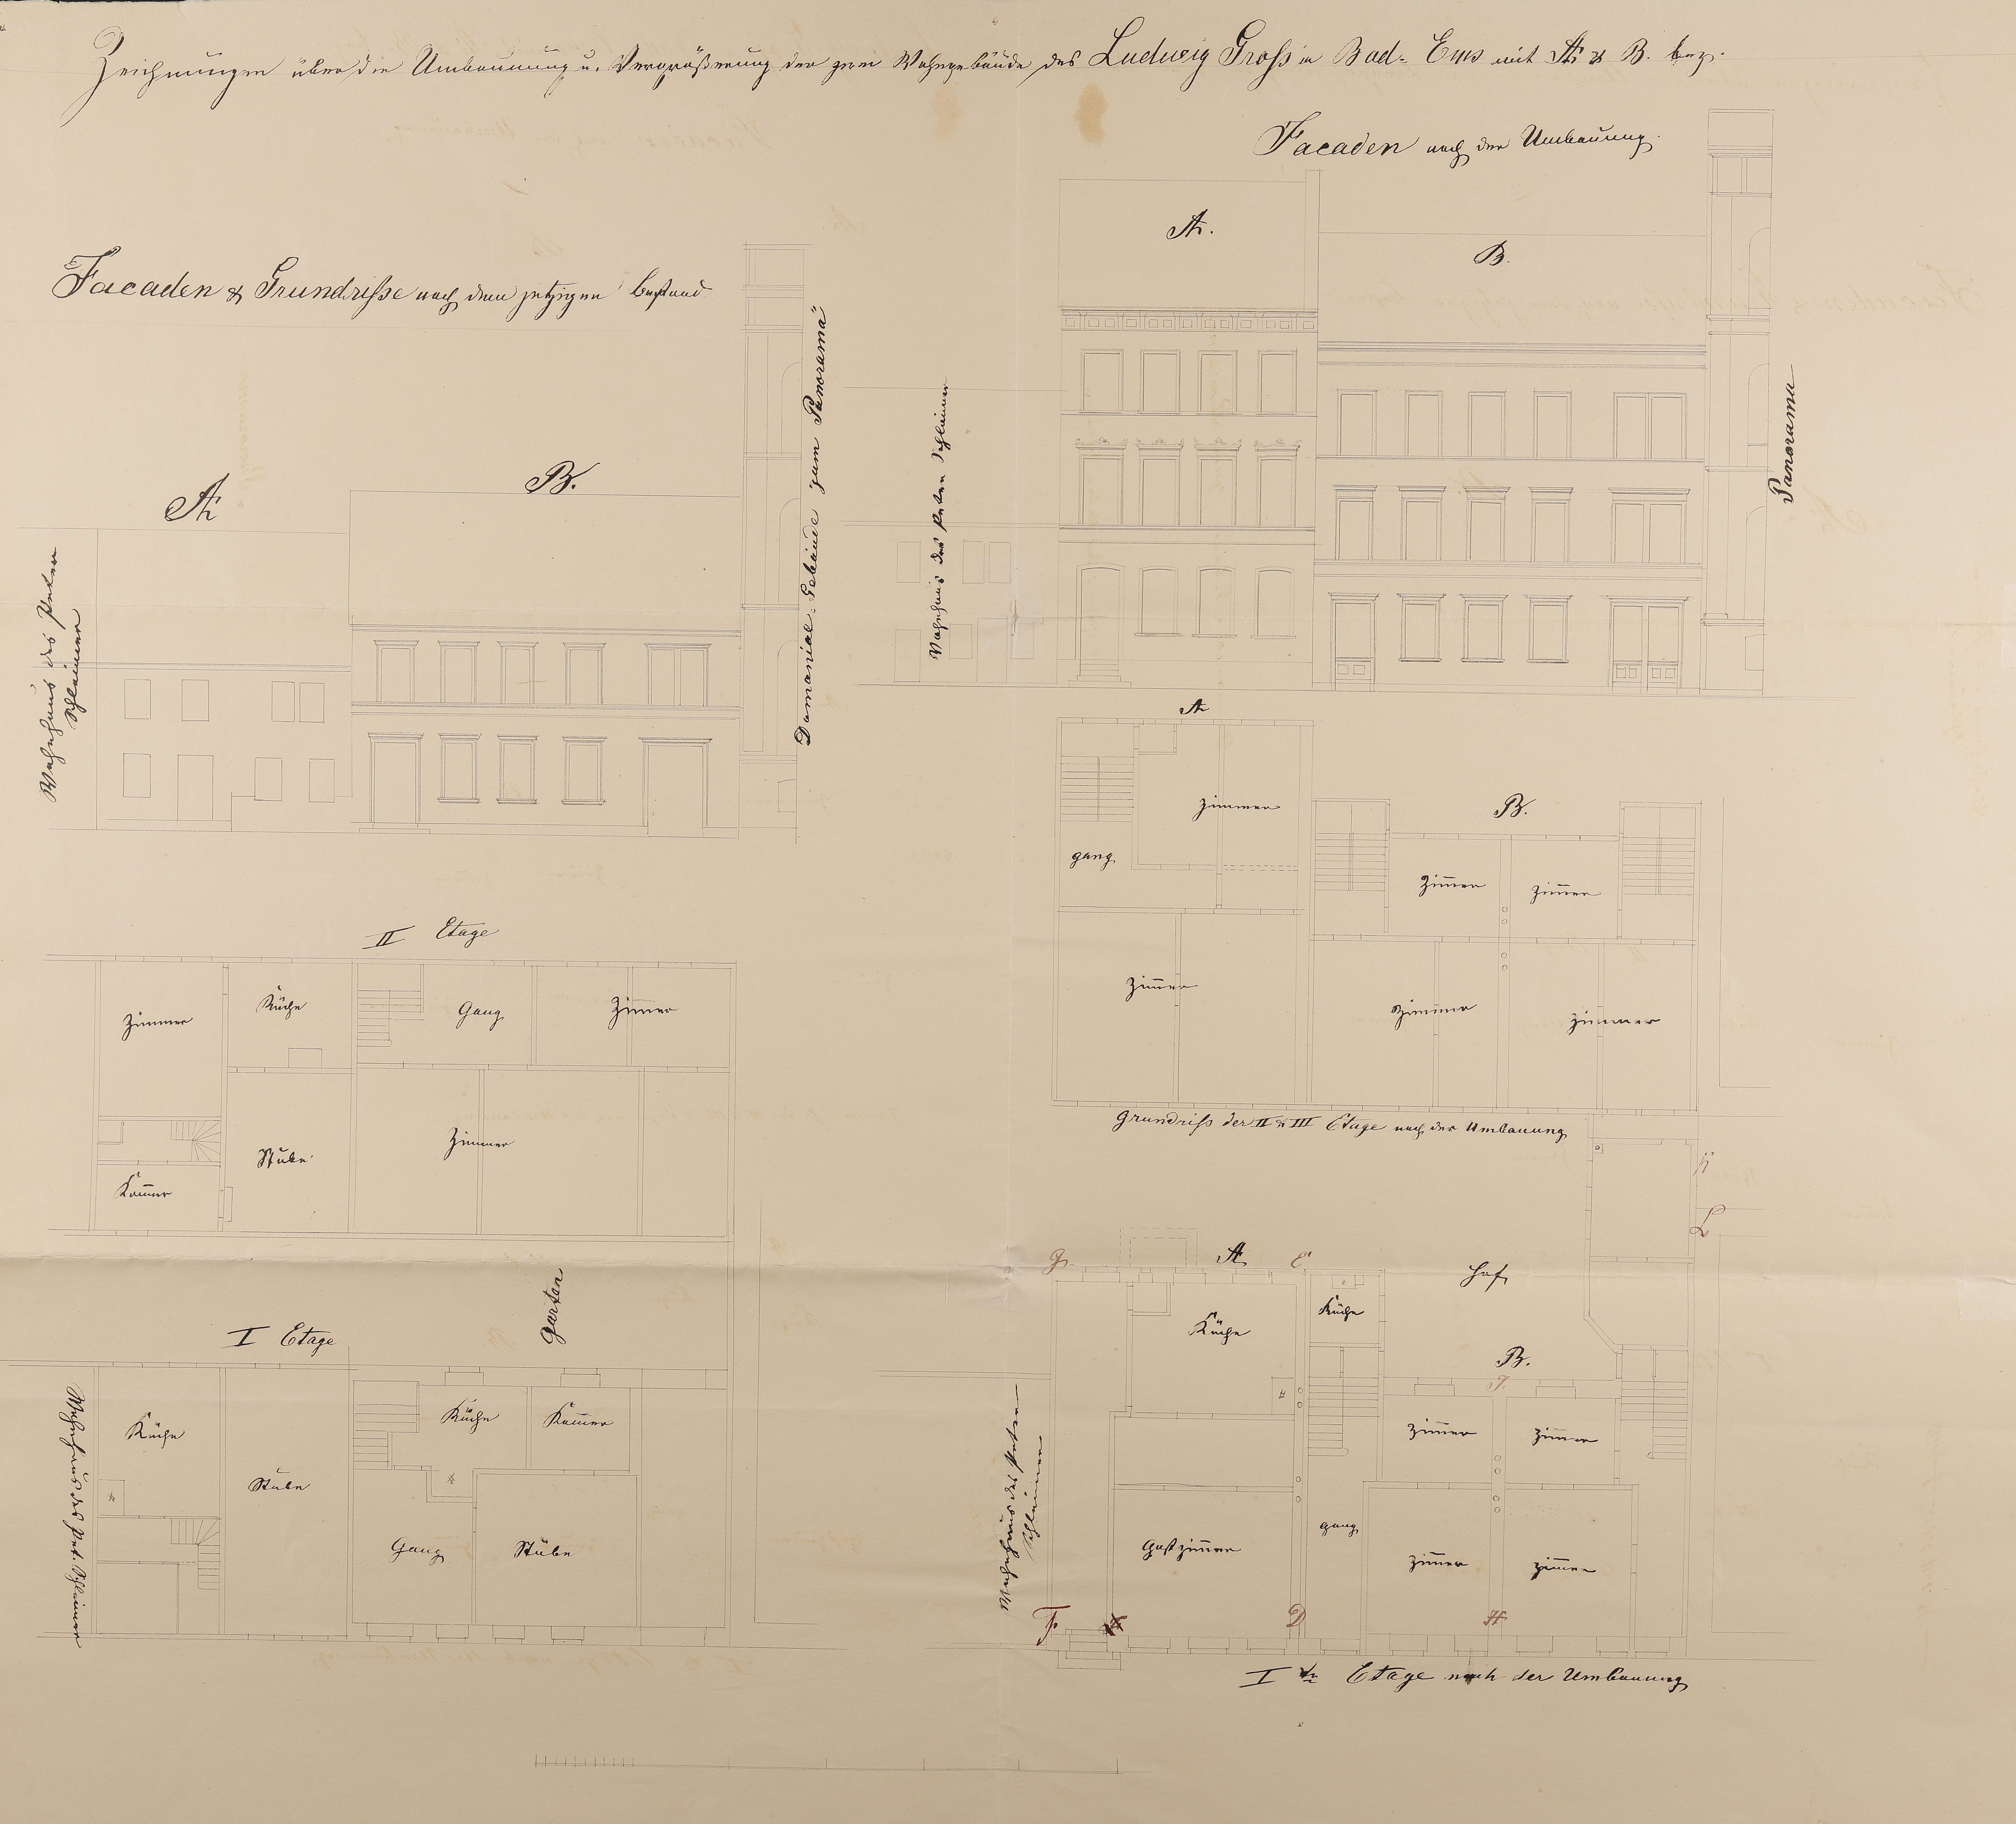 Zeichnungen über die Umbauung u. Vergrößerung der zwei Wohngebäude des Ludwig Gross in Bad-Ems mit A & B. bez.
Facaden nach der Umbauung.
A.
B.
Facaden & Grundrisse nach dem jetzigen Bestand
Domanial-Gebäude zum "Panorama"
Wohnhaus des Peter Schleimer
Panorama
A
B.
Wohnhaus des Peter
Schleimer
A
Zimmer
gang
B.
Zimer
Zimer
Zimer
Zimmer
Zimmer
Grundriss der II & III Etage nach der Umbauung
II Etage
Zimmer
Küche
Gang
Zimer
Stube
Zimmer
Kamer
Garten
I Etage
Küche
Stube
Küche
Kamer
Gang
Stube
Wohnhaus des Pet. Schleimer
K
L
G
A
E
Hof
Küche
Küche
B.
J.
Zimer
Zimer
Gastzimer
gang
Zimer
Zimer
Wohnhaus des Peter
Schleimer
F.
D
H
I te Etage nach der Umbauung